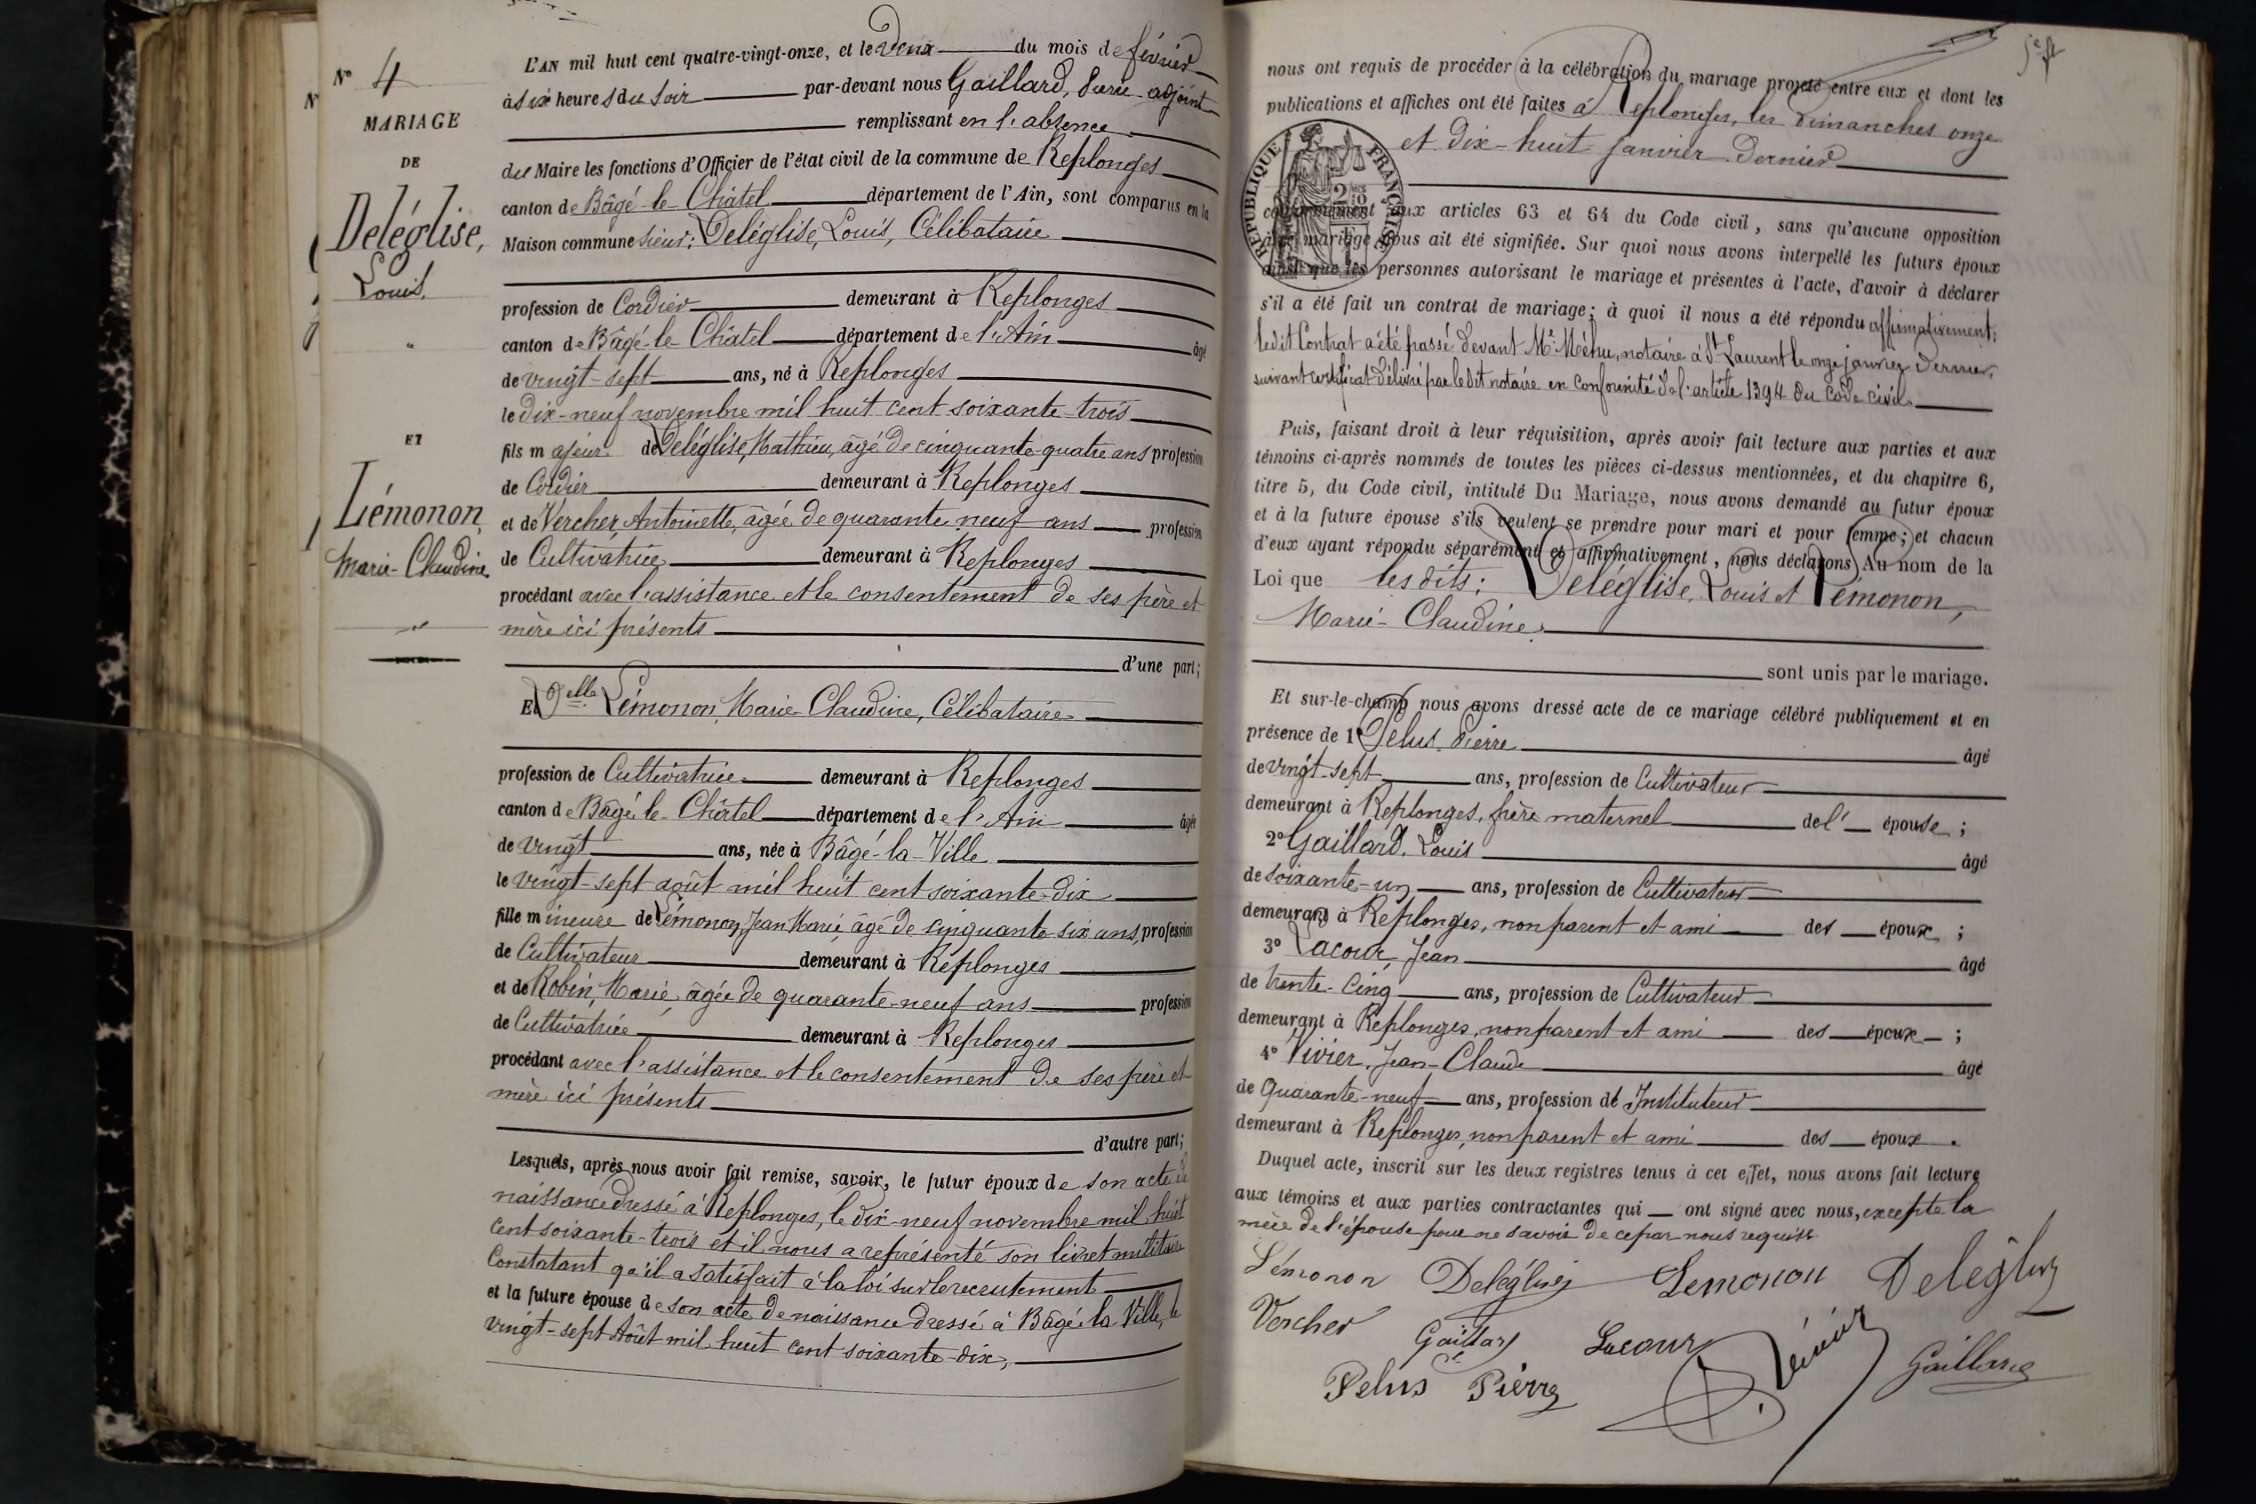 N° 4
MARIAGE
DE
Deléglise,
Louis.
ET
Lémonon,
Marie-Claudine
L'AN mil huit cent quatre-vingt-onze, et le Deux du mois de février
à six heures du soir par-devant nous Gaillard, adjoint
remplissant en l'absence
du Maire les fonctions d'Officier de l'état civil de la commune de Replonges
canton de Bâgé-le-Châtel département de l'Ain, sont comparus en la
Maison commune sieur: Deléglise, Louis, Célibataire
profession de Cordier demeurant à Replonges
canton de Bâgé-le-Châtel département de l'Ain âgé
de vingt-sept ans, né à Replonges
le dix-neuf novembre mil huit cent soixante-trois
fils majeur de Deléglise, Mathieu, âgé de cinquante-quatre ans profession
de Cordier demeurant à Replonges
et de Vercher, Antoinette, âgée de quarante-neuf ans profession
de Cultivatrice demeurant à Replonges
procédant avec l'assistance et le consentement de ses père et
mère ici présents
d'une part;
Et Delle Lémonon, Marie-Claudine, Célibataire
profession de Cultivatrice demeurant à Replonges
canton de Bâgé-le-Châtel département de l'Ain âgée
de vingt ans, née à Bâgé-la-Ville
le vingt-sept août mil huit cent soixante-dix
fille mineure de Lémonon, Jean Marie, âgé de cinquante-six ans, profession
de Cultivateur demeurant à Replonges
et de Robin, Marie, âgée de quarante-neuf ans profession
de Cultivatrice demeurant à Replonges
procédant avec l'assistance et le consentement de ses père et
mère ici présents
d'autre part;
Lesquels, après nous avoir fait remise, savoir, le futur époux de son acte de
naissance dressé à Replonges, le dix-neuf novembre mil huit
cent soixante-trois et il nous a représenté son livret militaire
Constatant qu'il a satisfait à la loi sur le recrutement
et la future épouse de son acte de naissance dressé à Bâgé-la-Ville, le
vingt-sept Août mil huit cent soixante-dix,
nous ont requis de procéder à la célébration du mariage projeté entre eux et dont les
publications et affiches ont été faites à Replonges, les Dimanches onze
et dix-huit janvier dernier
RÉPUBLIQUE FRANÇAISE
conformément aux articles 63 et 64 du Code civil, sans qu'aucune opposition
audit mariage nous ait été signifiée. Sur quoi nous avons interpellé les futurs époux
ainsi que les personnes autorisant le mariage et présentes à l'acte, d'avoir à déclarer
s'il a été fait un contrat de mariage; à quoi il nous a été répondu affirmativement:
ledit Contrat a été passé devant Me Méhu, notaire à St Laurent le onze janvier dernier,
suivant certificat délivré par le dit notaire en conformité de l'article 1394 du Code civil.
Puis, faisant droit à leur réquisition, après avoir fait lecture aux parties et aux
témoins ci-après nommés de toutes les pièces ci-dessus mentionnées, et du chapitre 6,
titre 5, du Code civil, intitulé Du Mariage, nous avons demandé au futur époux
et à la future épouse s'ils veulent se prendre pour mari et pour femme; et chacun
d'eux ayant répondu séparément et affirmativement, nous déclarons Au nom de la
Loi que les dits: Deléglise, Louis et Lémonon,
Marie-Claudine
sont unis par le mariage.
Et sur-le-champ nous avons dressé acte de ce mariage célébré publiquement et en
présence de 1° Pelus, Pierre âgé
de vingt-sept ans, profession de Cultivateur
demeurant à Replonges, frère maternel de l'épouse;
2° Gaillard, Louis âgé
de soixante-un ans, profession de Cultivateur
demeurant à Replonges, non parent et ami des époux;
3° Lacour, Jean âgé
de trente-cinq ans, profession de Cultivateur
demeurant à Replonges, non parent et ami des époux;
4° Vivier, Jean-Claude âgé
de Quarante-neuf ans, profession de Instituteur
demeurant à Replonges, non parent et ami des époux.
Duquel acte, inscrit sur les deux registres tenus à cet effet, nous avons fait lecture
aux témoins et aux parties contractantes qui ont signé avec nous, excepté la
mère de l'épouse pour ne savoir de ce par nous requise
Lémonon Deléglise Lemonon Deléglise
Vercher Gaillard Lacour Vivier Gaillard
Pelus Pierre